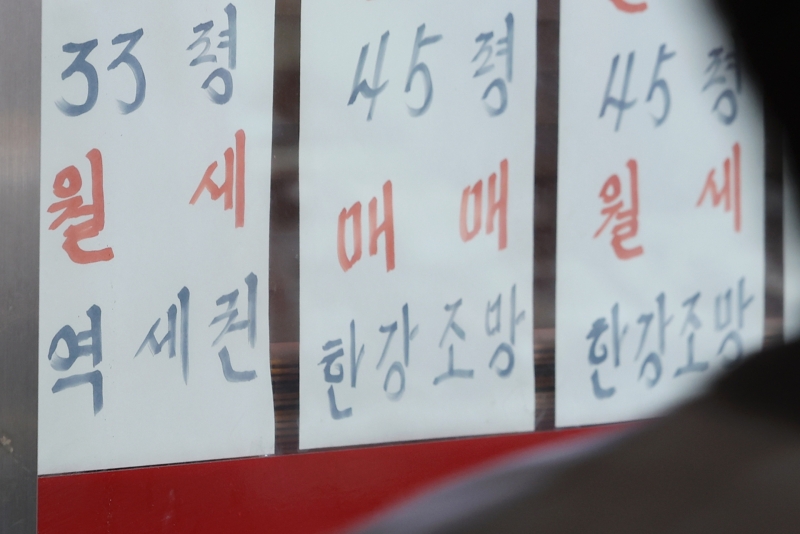 33 평
월 세
역 세 권
45 평
매 매
한강 조망
45 평
월 세
한강 조망